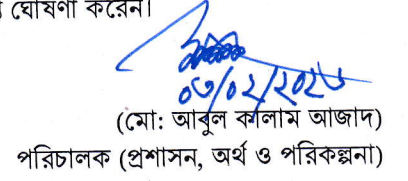 ঘোষণা করেন।
০৩/০২/২০২৬
(মো: আবুল কালাম আজাদ)
পরিচালক (প্রশাসন, অর্থ ও পরিকল্পনা)